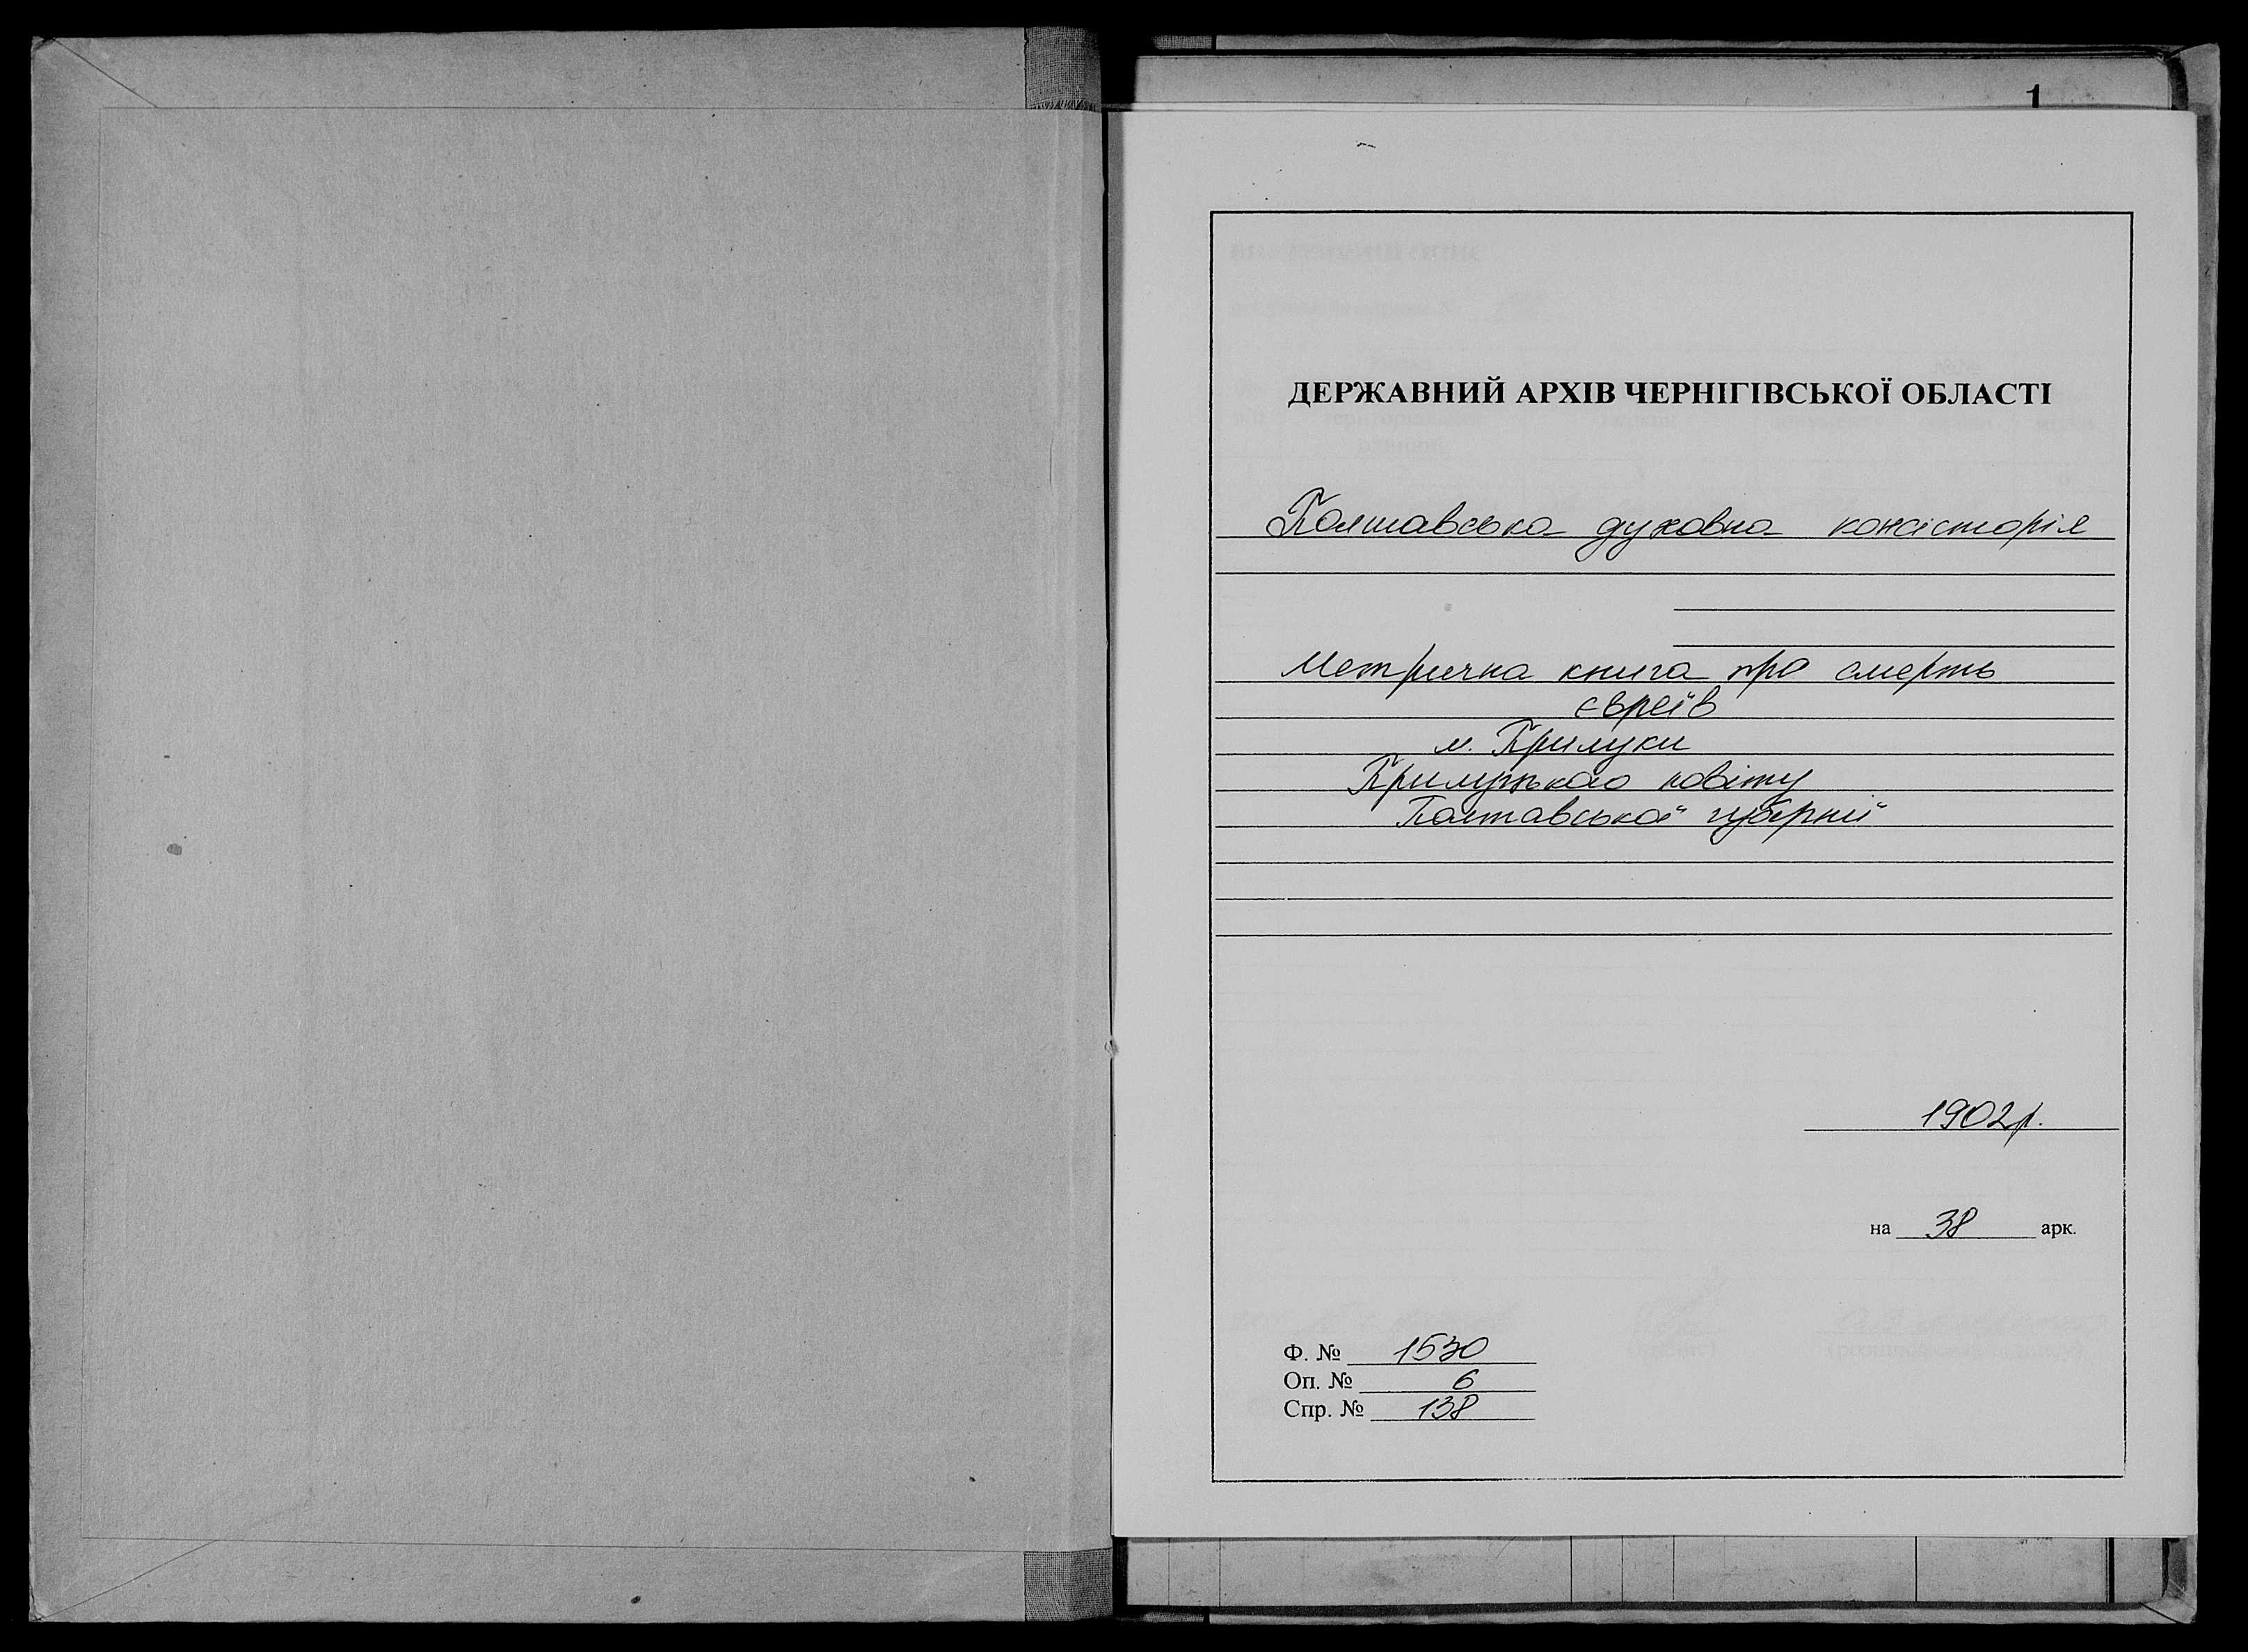 1
ДЕРЖАВНИЙ АРХІВ ЧЕРНІГІВСЬКОЇ ОБЛАСТІ
Полтавська духовна консісторія
Метрична книга про смерть
євреїв
м. Прилуки
Прилуцького повіту
Полтавської губернії
1902р.
на 38 арк.
Ф. № 1530
Оп. № 6
Спр. № 138